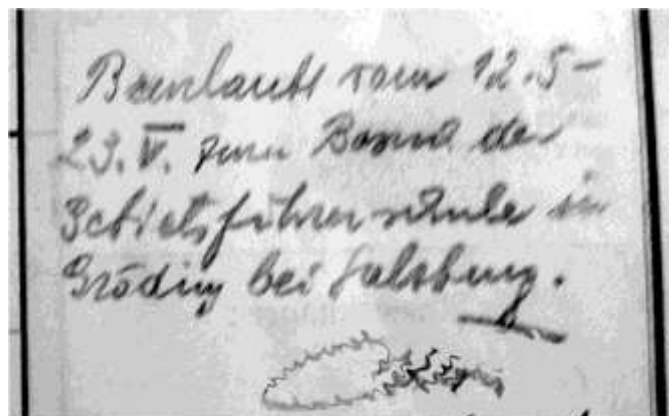 Beurlaubt vom 12.5-
23.V. zum Besuch der
Gebietsführerschule in
Grödig bei Salzburg.